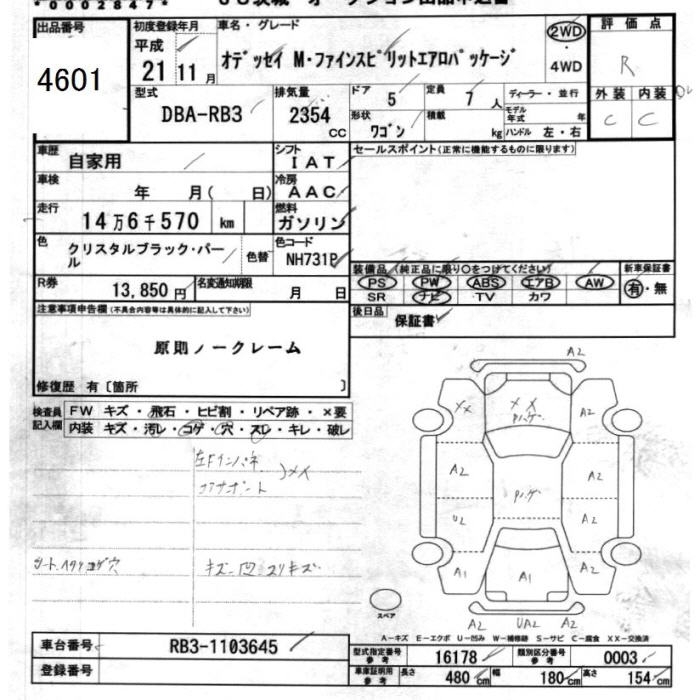 *0002847*
出品番号
4601
初度登録年月
平成
21年11月
車名・グレード
オデッセイ M・ファインスピリットエアロパッケージ
2WD
・
4WD
評価点
R
外装 内装
C C
型式
DBA-RB3
排気量
2354
CC
ドア 5
定員 7 人
ディーラー・並行
形状 ワゴン
積載 kg
モデル年式 年
ハンドル 左・右
車歴 自家用
シフト IAT
セールスポイント(正常に機能するものに限ります)
車検 年 月( 日)
冷房 AAC
走行 14万6千570 km
燃料 ガソリン
色 クリスタルブラック・パール
色替
色コード NH731P
R券 13,850円
名変通知期限 月 日
装備品(純正品に限り○をつけてください)
PS PW ABS エアB AW
SR ナビ TV カワ
新車保証書
有・無
後日品 保証書
注意事項申告欄(不具合内容等は具体的に記入して下さい)
原則ノークレーム
修復歴 有〔箇所 〕
検査員記入欄
FW キズ・飛石・ヒビ割・リペア跡・×要
内装 キズ・汚レ・コゲ・穴・スレ・キレ・破レ
左Fインパネ
コアサポート
メイ
シート・ヘタリコゲ穴
キズ・凹・スリキズ
A2
XX
XX
Pハゲ
A2
A2
Pハゲ
A2
U2
A2
A1
A1
A2
A2 UA2 A2
スペア
A-キズ E-エクボ U-凹み W-補修跡 S-サビ C-腐食 XX-交換済
車台番号 RB3-1103645
登録番号
型式指定番号 参考 16178
類別区分番号 参考 0003
車庫証明用 参考 長さ 480cm 幅 180cm 高さ 154cm